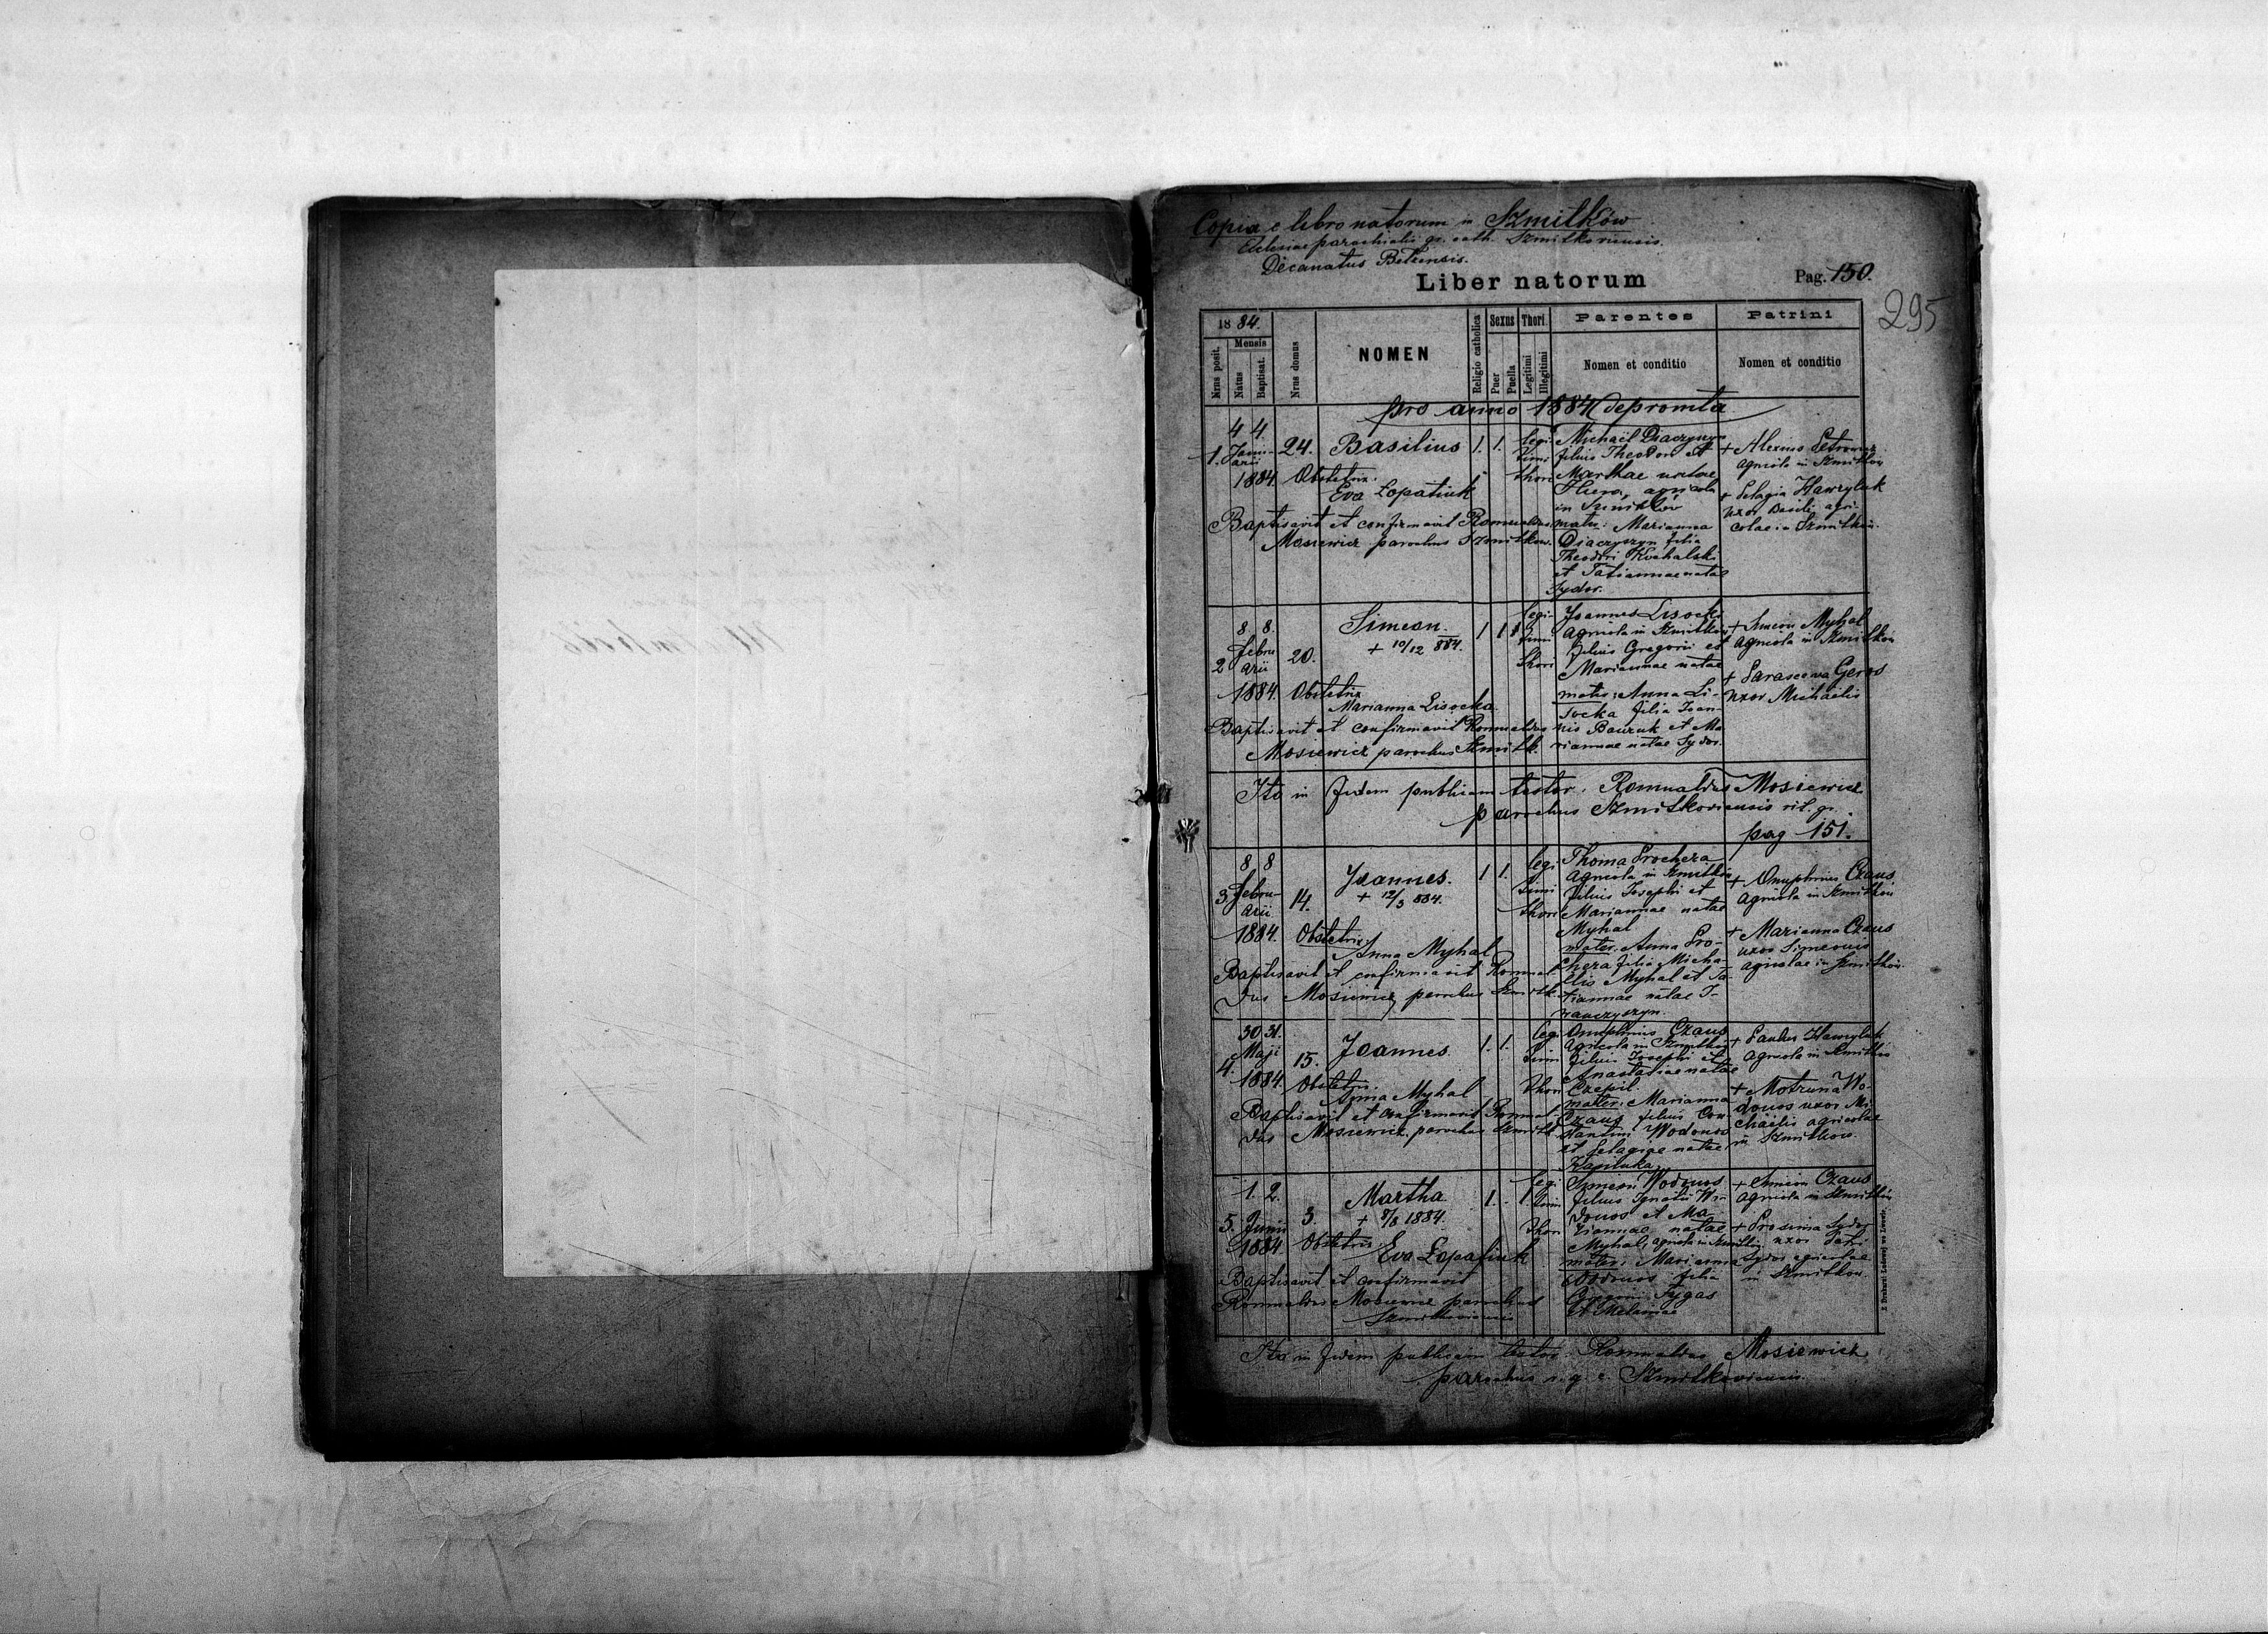 Copia e libro natorum in Szmitków
Eclesiae parochialis gr. cath. Szmitkoviensis.
Decanatus Belzensis.
Liber natorum
Pag. 150.
295
1884.
Mensis
Nrus posit.
Natus
Baptisat.
Nrus domus
NOMEN
Religio catholica
Sexus
Puer
Puella
Thori
Legitimi
Illegitimi
Parentes
Nomen et conditio
Patrini
Nomen et conditio
pro anno 1884 depromta
1. 4 4 Januarii 1884. 24. Basilius 1. 1. legi-
timi
thori
Obstetrix
Eva Lopatiuk
Baptisavit et confirmavit Romualdus
Mosiewicz parochus Szmitkow.
Michaël Diaczyszyn
filius Theodori et
Marthae natae
agricola
in Szmitków
mater: Marianna
Diaczyszyn filia
Theodori
et Tatiannae natae
Sydor.
+ Alexius
agricola in Szmitków
+ Pelagia Hawryluk
uxor Basilii agri-
colae in Szmitków.
2. 8. 8. Februarii 1884. 20. Simeon. 1 1 legi-
timi
thori
+ 10/12 884.
Obstetrix
Marianna Lisocka.
Baptisavit et confirmavit Romualdus
Mosiewicz parochus Szmitk.
Joannes Lisocki
agricola in Szmitków
filius Gregorii et
Mariannae natae
mater: Anna Li-
socka filia Joan-
nis et Ma-
riannae natae Sydor.
+ Simeon Myhal
agricola in Szmitków
+ Parasceva
uxor Michaëlis
Ita in fidem publicam testor. Romualdus Mosiewicz
parochus Szmitkoviensis rit. gr.
pag 151.
3. 8 8 Februarii 1884. 14. Joannes. 1 1. legi-
timi
thori
+ 12/3 884.
Obstetrix
Anna Myhal
Baptisavit et confirmavit Romual-
dus Mosiewicz parochus Szmitk.
Thoma Prochera
agricola in Szmitków
filius Josephi et
Mariannae natae
Myhal
mater. Anna Pro-
chera filia Micha-
elis Myhal et Ta-
tiannae natae I-
wanczyszyn.
+ Onuphrius Czaus
agricola in Szmitków
+ Marianna Czaus
uxor Simeonis
agricolae in Szmitków.
4. 30 31. Maji 1884. 15. Joannes 1. 1. legi
timi
thori
Obstetrix.
Anna Myhal
Baptisavit et confirmavit Romual-
dus Mosiewicz parochus Szmitk.
Onuphrius Czaus
agricola in Szmitków
filius Josephi et
Anastasiae natae
mater: Marianna
Czaus filia Con-
stantini Wodonos
et Pelagiae natae
+ Hawryluk
agricola in Szmitków
+ Motruna Wo-
donos uxor Mi-
chaëlis agricolae
in Szmitków.
5. 1. 2. Junii 1884. 3. Martha 1. 1. legi
timi
thori
+ 8/8 1884.
Obstetrix
Eva Lopatiuk
Baptisavit et confirmavit
Romualdus Mosiewicz parochus
Szmitkoviensis
Simeon Wodonos
filius Ignatii Wo-
donos et Ma-
riannae natae
Myhal, agricola in Szmitków
mater: Marianna
Wodonos filia
Gregorii
et Melaniae
+ Simeon Czaus
agricola in Szmitków
+ Sydor
uxor
Sydor agricolae
in Szmitków.
Ita in fidem publicam testor Romualdus Mosiewicz
parochus r. g. c. Szmitkoviensis.
Z Drukarni Ludowej we Lwowie.